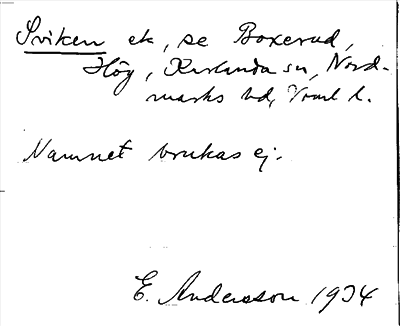 Sviken ek, se Boxerud,
Hög, Karlanda sn, Nord-
marks hd, Vrml l.
Namnet brukas ej.
E. Andersson 1934